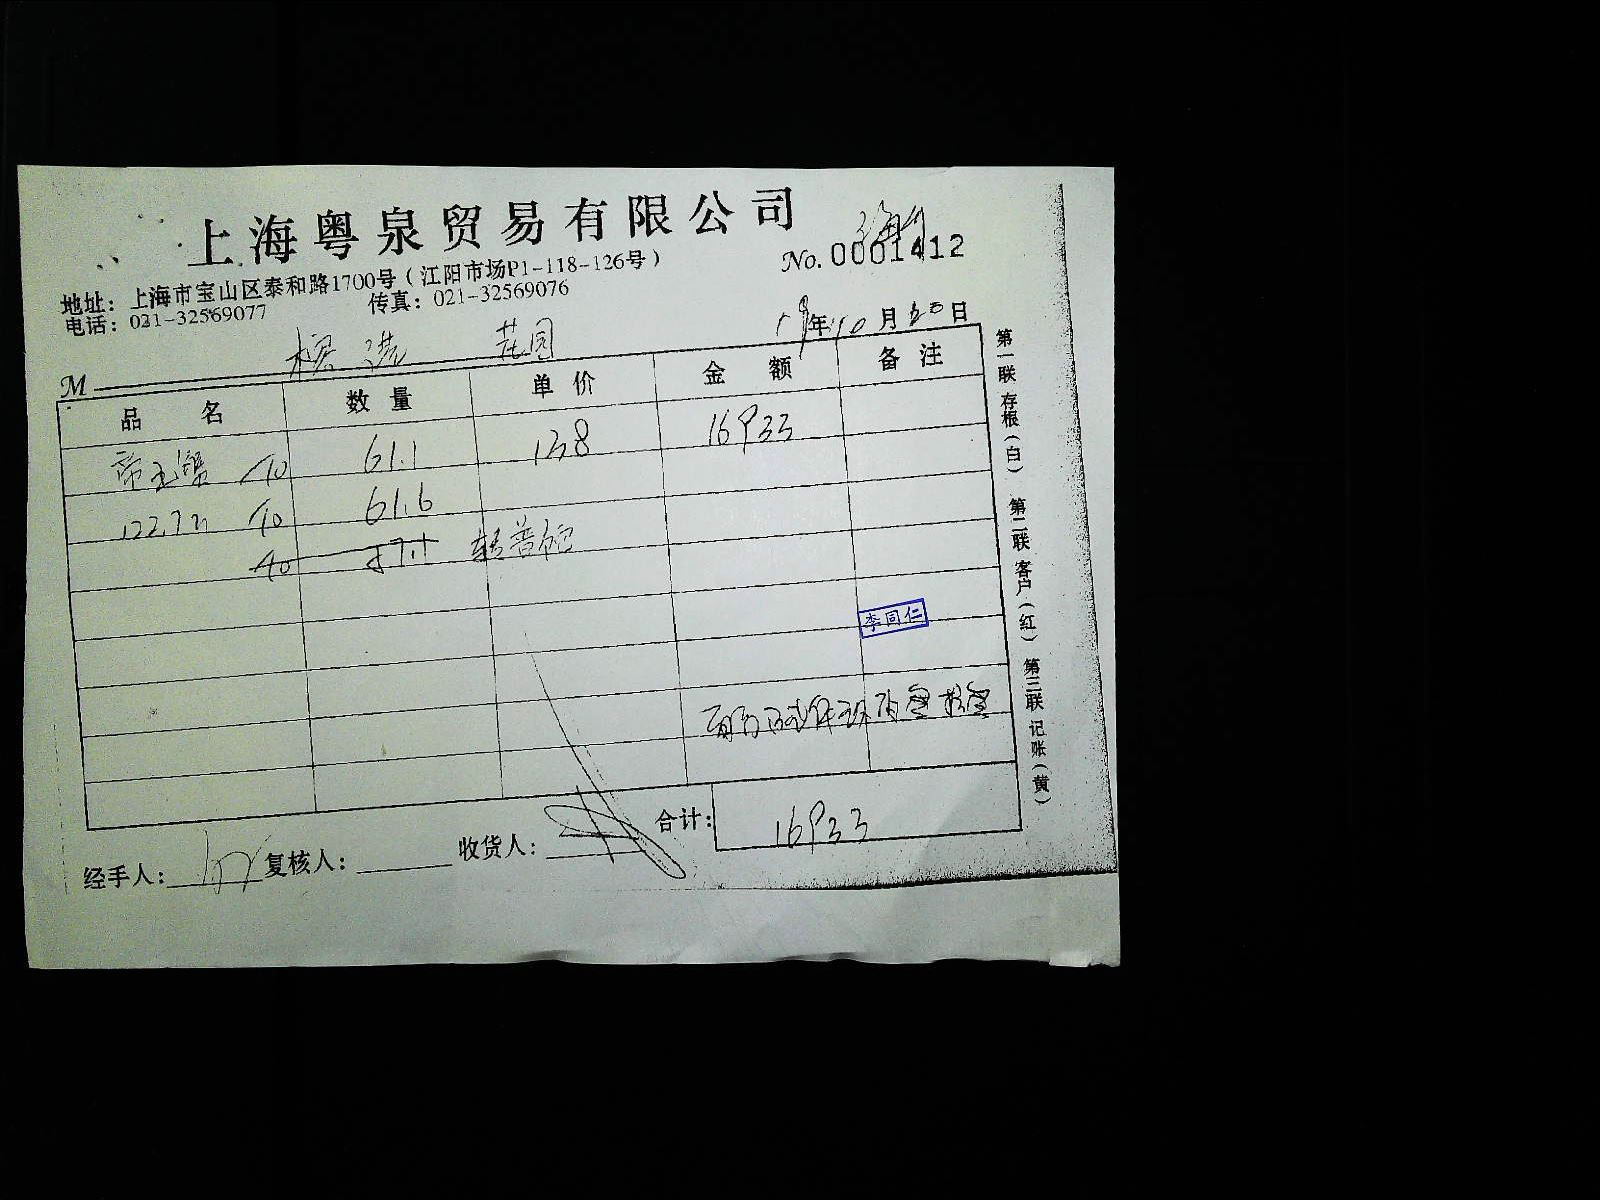 上海粤泉贸易有限公司
No. 0001412
地址：上海市宝山区泰和路1700号（江阳市场P1-118-126号）
电话：021-32569077 传真：021-32569076
19年10月20日
M 花园
品名 数量 单价 金额 备注
帝王蟹 61.1 138 16933
61.6
转普陀
李同仁
合计： 16933
经手人： 复核人： 收货人：
第一联 存根（白） 第二联 客户（红） 第三联 记账（黄）